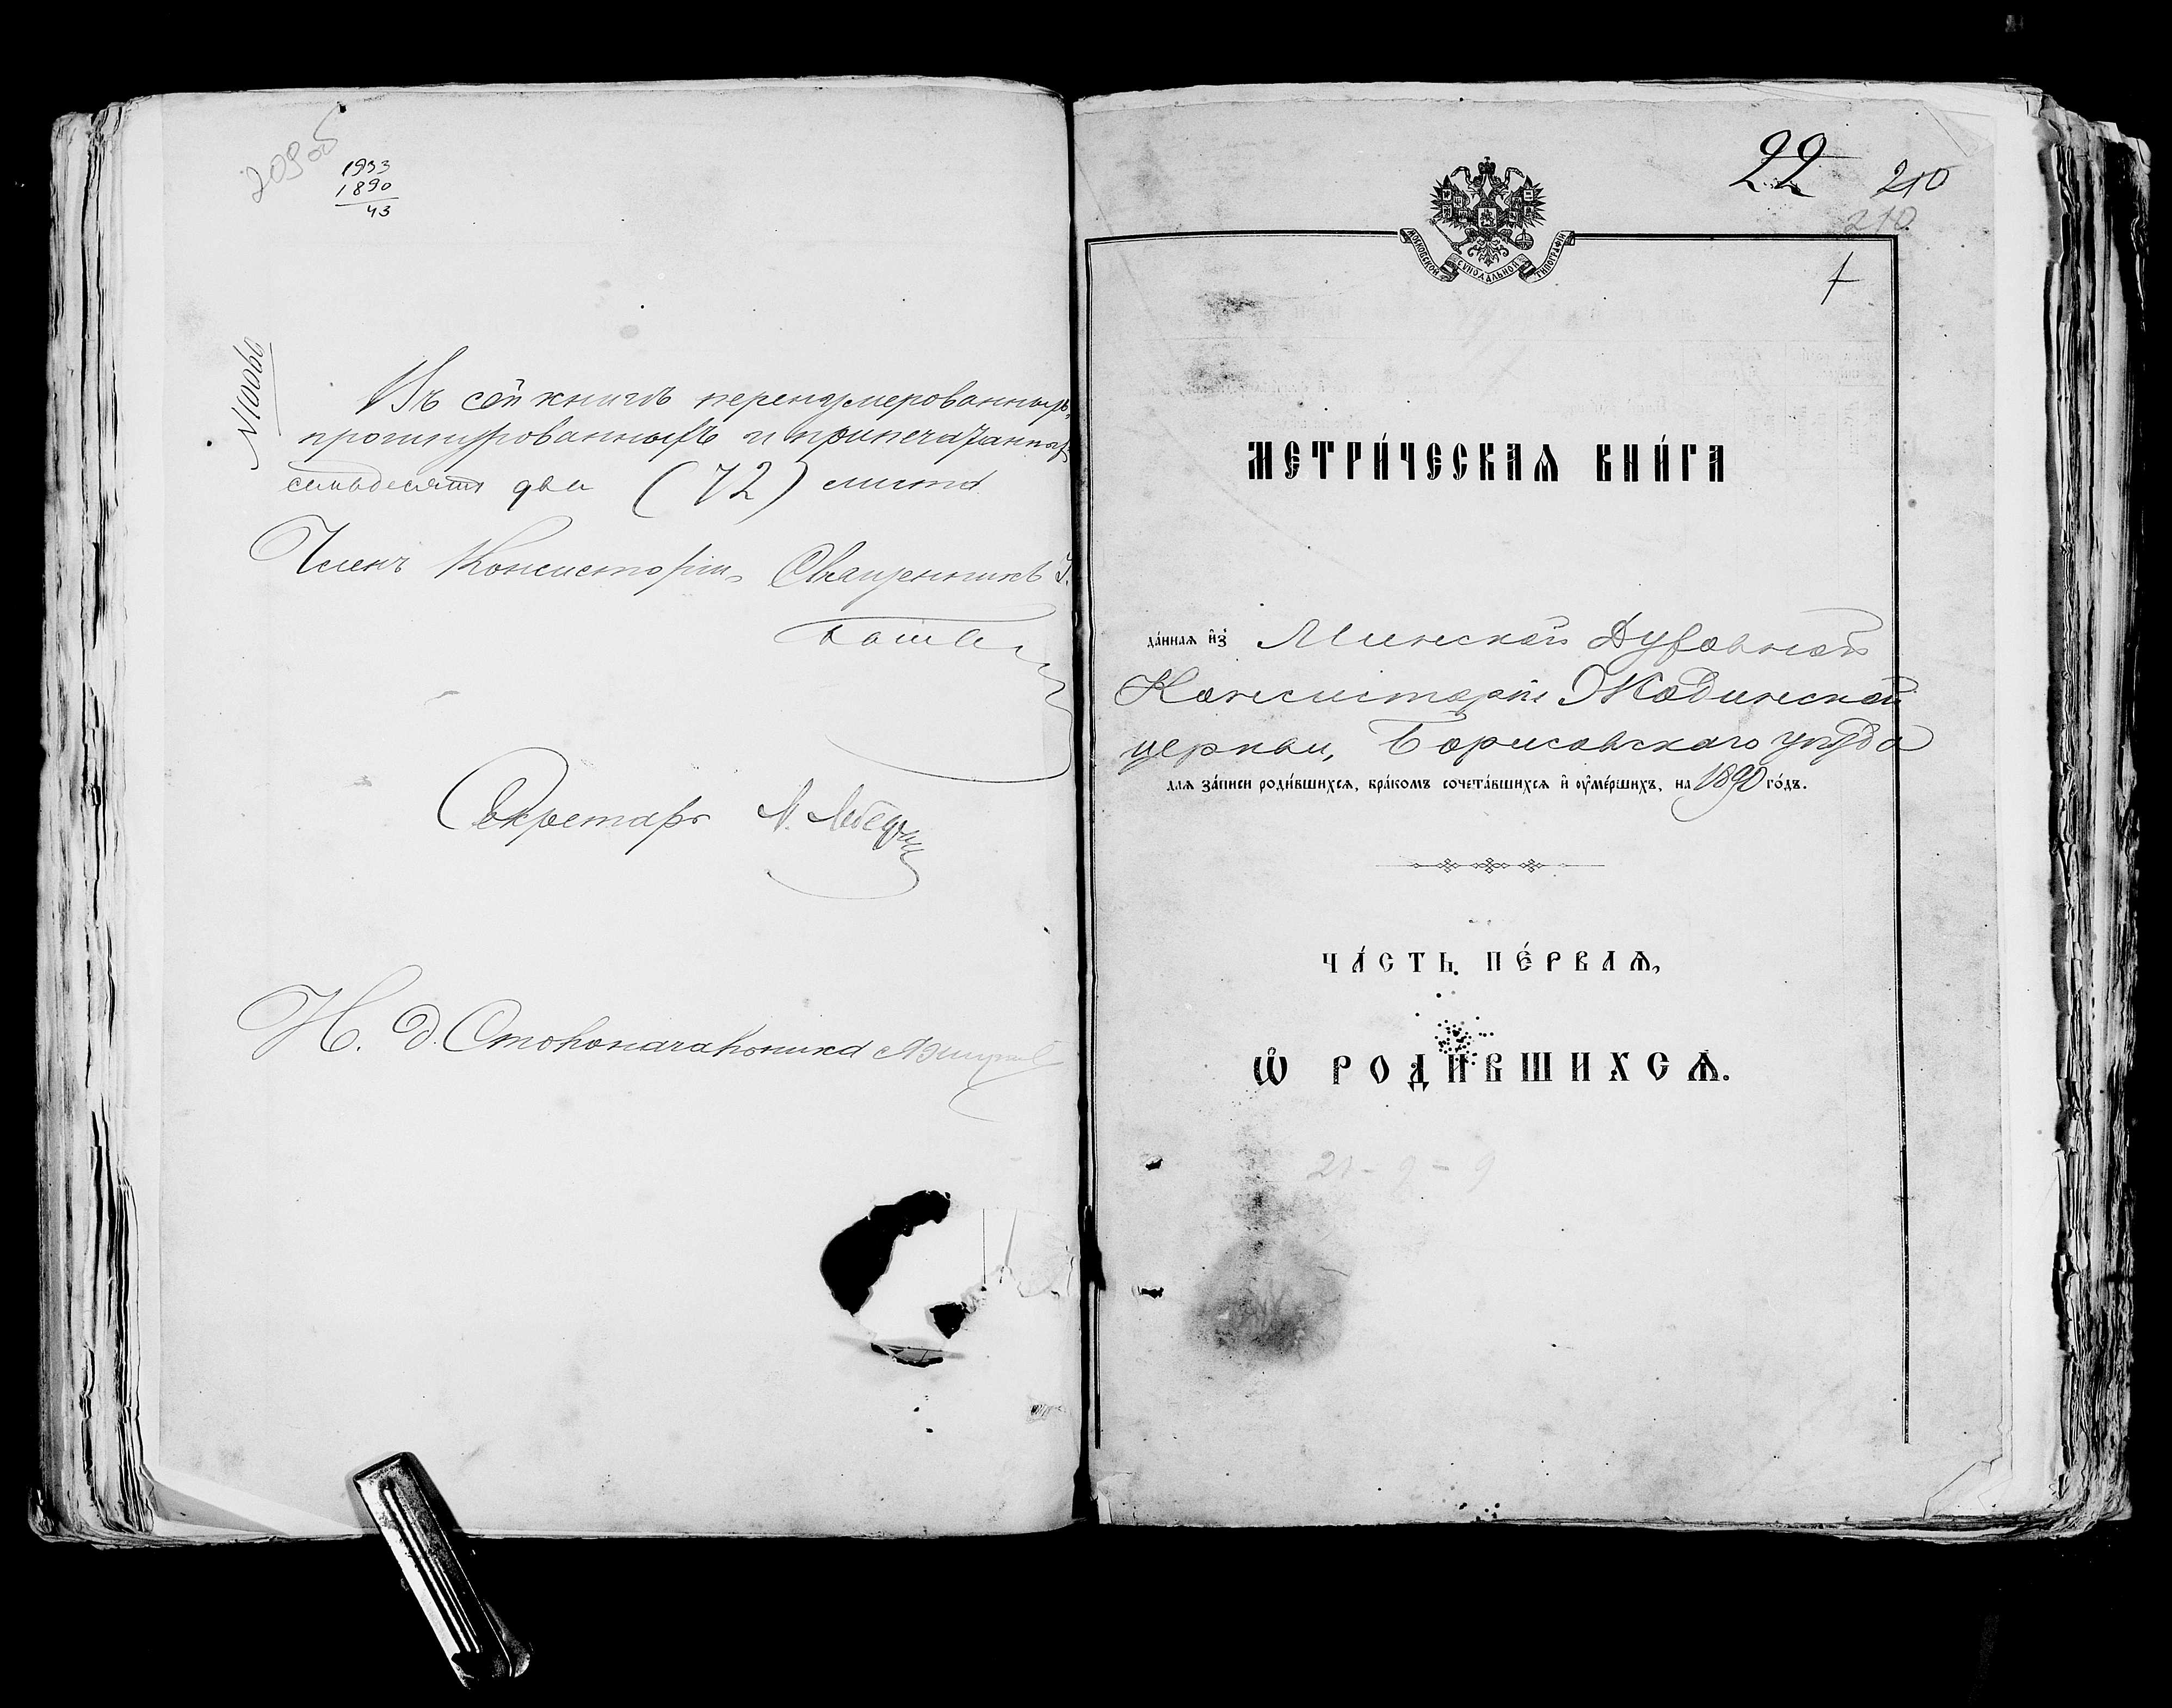 209 об
1933
1890
43
Въ сей книгѣ перенумерованныхъ,
прошнурованныхъ и припечатанныхъ
семьдесятъ два (72) листа
Членъ Консисторіи, Священникъ
Секретарь
Н. д. Столоначальника
22
210
210
МОСКОВСКОЙ СѴНОДАЛЬНОЙ ТИПОГРАФІИ
МЕТРИ́ЧЕСКАѦ КНИ́ГА
да́ннаѧ и҆з̾ Минской Духовной
Консисторіи Жодинской
церкви, Борисовскаго уѣзда
длѧ за́писи роди́вшихсѧ, бра́комъ сочета́вшихсѧ и҆ ѹ҆ме́ршихъ, на 1890 го́дъ.
ЧА́СТЬ ПЕ́РВАѦ,
Ѡ҆ РОДИ́ВШИХСѦ.
21 - 9 - 9